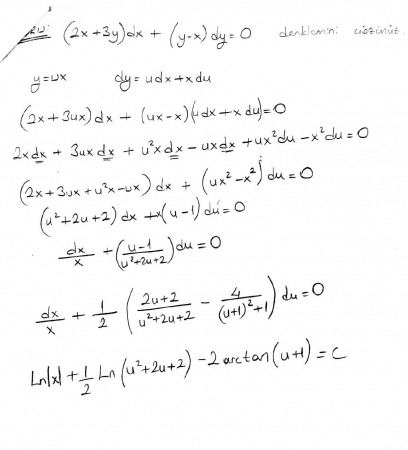 (2x+3y)dx + (y-x)dy=0 denklemini çözünüz.
y=ux dy=udx+xdu
(2x+3ux)dx + (ux-x)(udx+xdu)=0
2xdx + 3uxdx + u²xdx - uxdx + ux²du - x²du=0
(2x+3ux+u²x-ux)dx + (ux²-x²)du=0
(u²+2u+2)dx + x(u-1)du=0
dx/x + (u-1/u²+2u+2)du=0
dx/x + 1/2 (2u+2/u²+2u+2 - 4/(u+1)²+1) du=0
Ln|x| + 1/2 Ln(u²+2u+2) - 2arctan(u+1) = c